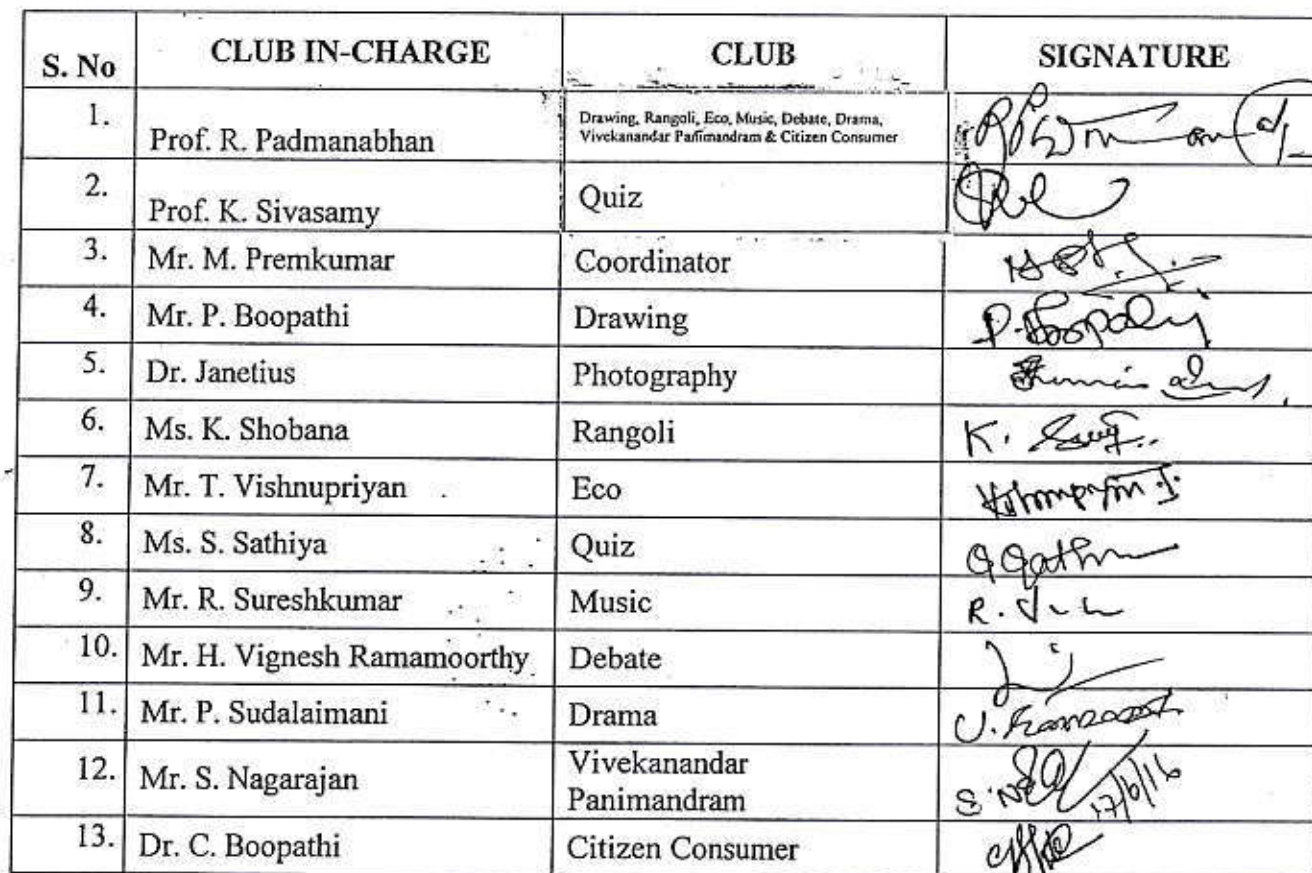 S. No CLUB IN-CHARGE CLUB SIGNATURE
1. Prof. R. Padmanabhan Drawing, Rangoli, Eco, Music, Debate, Drama,
Vivekanandar Panimandram & Citizen Consumer
2. Prof. K. Sivasamy Quiz
3. Mr. M. Premkumar Coordinator
4. Mr. P. Boopathi Drawing P. Boopathy
5. Dr. Janetius Photography
6. Ms. K. Shobana Rangoli K.
7. Mr. T. Vishnupriyan Eco
8. Ms. S. Sathiya Quiz
9. Mr. R. Sureshkumar Music R.
10. Mr. H. Vignesh Ramamoorthy Debate
11. Mr. P. Sudalaimani Drama
12. Mr. S. Nagarajan Vivekanandar
Panimandram 17/6/16
13. Dr. C. Boopathi Citizen Consumer